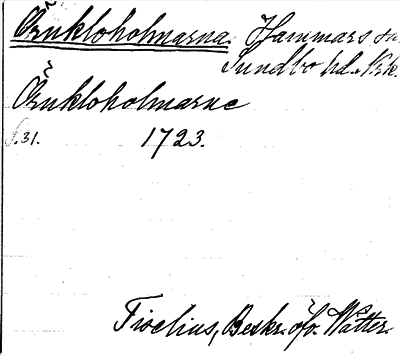 Örnkloholmarna. Hammars sn.
Sundbo hd. Nrk.
Örnkloholmarne
S.31. 1723.
Tiselius, Beskr. öfv. Wätter.